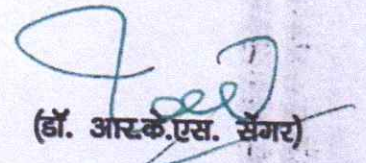 (डॉ. आर.के.एस. सेंगर)